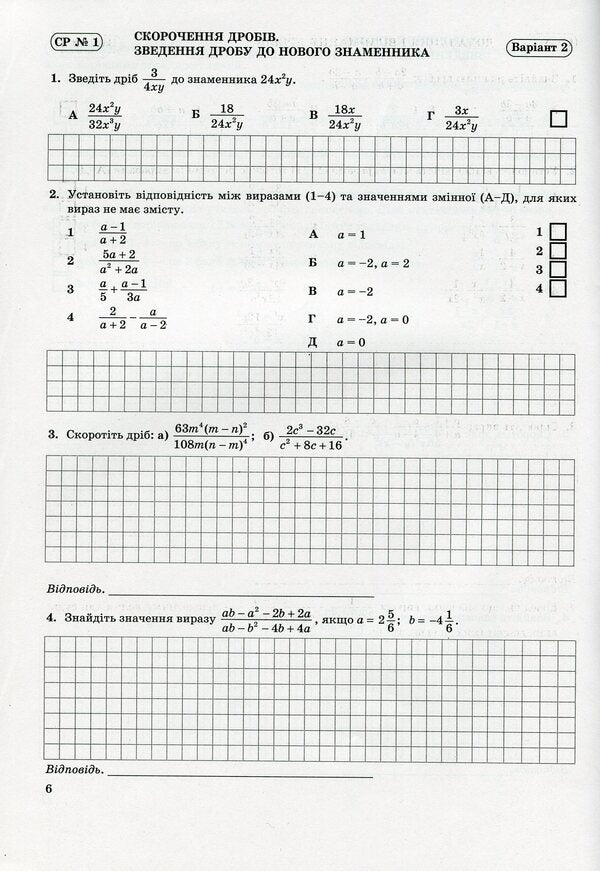 СР № 1
СКОРОЧЕННЯ ДРОБІВ.
ЗВЕДЕННЯ ДРОБУ ДО НОВОГО ЗНАМЕННИКА
Варіант 2
1. Зведіть дріб 3/(4xy) до знаменника 24x²y.
А 24x²y/(32x³y) Б 18/(24x²y) В 18x/(24x²y) Г 3x/(24x²y)
2. Установіть відповідність між виразами (1–4) та значеннями змінної (А–Д), для яких
вираз не має змісту.
1 (a – 1)/(a + 2) А a = 1 1
2 (5a + 2)/(a² + 2a) Б a = –2, a = 2 2
3 a/5 + (a – 1)/(3a) В a = –2 3
4 2/(a + 2) – a/(a – 2) Г a = –2, a = 0 4
Д a = 0
3. Скоротіть дріб: а) 63m⁴(m – n)²/(108m(n – m)⁴); б) (2c³ – 32c)/(c² + 8c + 16).
Відповідь.
4. Знайдіть значення виразу (ab – a² – 2b + 2a)/(ab – b² – 4b + 4a), якщо a = 2 5/6; b = –4 1/6.
Відповідь.
6